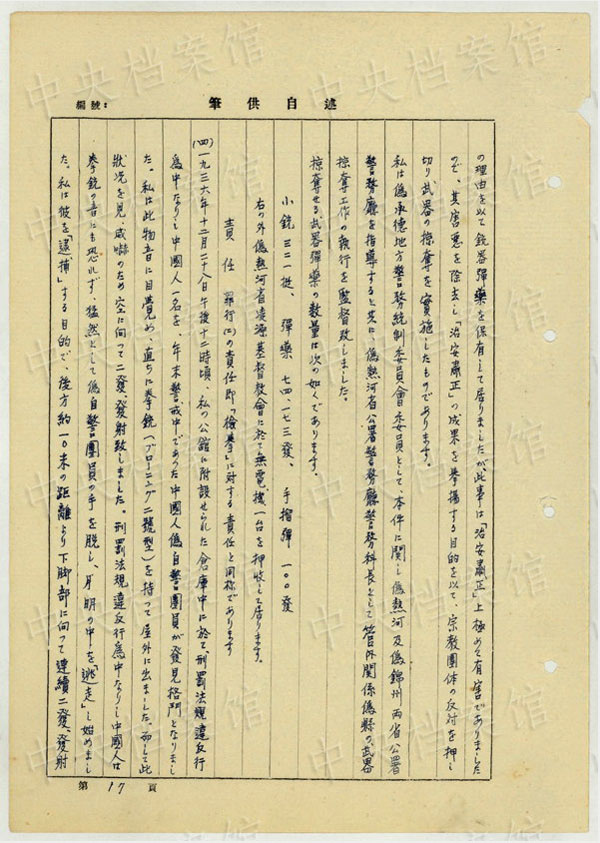 述自供筆
編號:
の理由を以て銃器彈藥を保有して居りましたが此事は「治安肅正」上極めて有害でありました
ので、其害悪を除去し「治安肅正」の成果を挙揚する目的を以て、宗教團体の反対を押し
切り武器の掠奪を実施したものであります。
私は偽承德地方警務統制委員會委員として、本件に関し偽熱河及偽錦州両省公署
警務廳を指導すると共に、偽熱河省公署警務廳警務科長として管外関係偽縣の武器
掠奪工作の執行を監督致しました。
掠奪せる武器彈藥の数量は次の如くであります。
小銃 三二一挺、彈藥 七四、一七三發、手榴彈 一〇〇發
右の外偽熱河省凌源基督教會に於て無電機一台を押收して居ります。
責任 罪行(二)の責任即「檢挙」に対する責任と同称であります
(四)一九三六年十二月二十八日午後十二時頃、私の公館に附設せられた倉庫中に於て刑罰法規違反行
為中なりし中國人一名を、年末警戒中であった中國人偽自警團員が發見格鬥となりまし
た。私は此物音に目覺め、直ちに拳銃(ブローニング二號型)を持って屋外に出ました。而して此
狀況を見、威嚇のため空に向って二發、發射致しました。刑罰法規違反行為中なりし中國人は
拳銃の音にも恐れず、猛然として偽自警團員の手を脱し、月明の中を「逃走」し始めまし
た。私は彼を「逮捕」する目的で、後方約一〇米の距離より下脚部に向って連續二發、發射
第 17 頁
中央档案馆